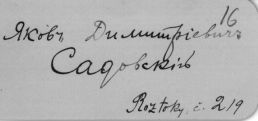 16
Яковъ Димитріевичъ
Садовскій
Roztoky, č. 219